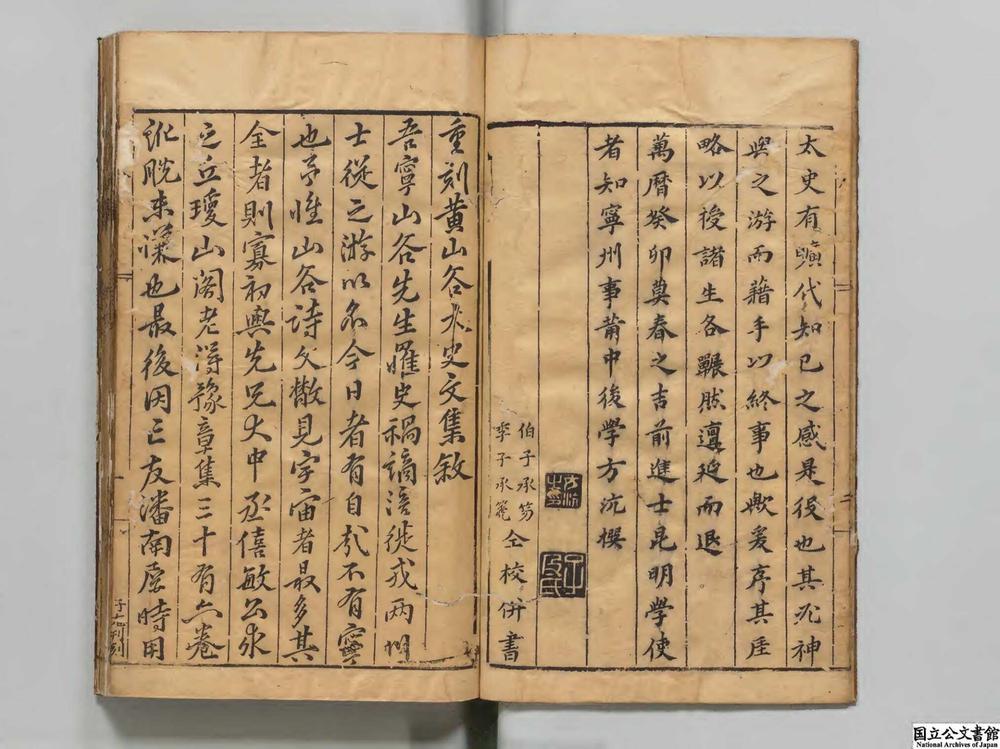 太史有曠代知已之感是後也其況神
與之游而藉手以終事也歟爰序其厓
略以授諸生各囅然逡廵而退
萬曆癸卯莫春之吉前進士昆明學使
者知寧州事莆中後學方沆撰
伯子承笏
季子承篪
仝校併書
重刻黃山谷太史文集敘
吾寧山谷先生罹史禍謫涪徙戎兩州
士從之游以名今日者有自哉不有寧
也予惟山谷詩文散見宇宙者最多其
全者則寡初與先兄大中丞僖敏公求
之丘瓊山閣老淂豫章集三十有六卷
訛脫未慊也最後因亡友潘南屏時用
国立公文書館
National Archives of Japan